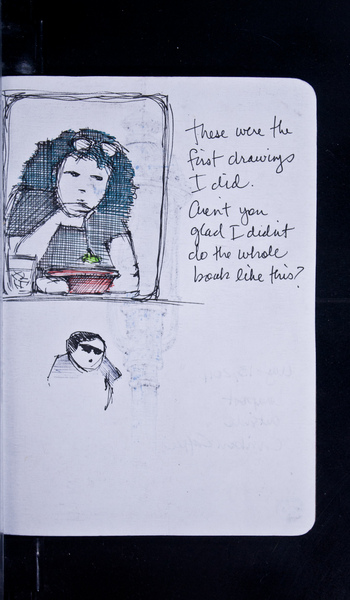 these were the
first drawings
I did.
Aren't you
glad I didn't
do the whole
book like this?